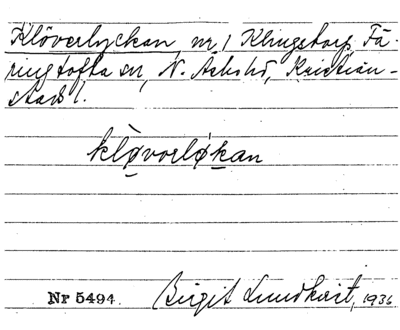 Klöverlyckan, nr 1 Klingstorp, Fä-
ringtofta sn, N. Asbo hd, Kristian-
stads l.
klø̀vorlø̀kan
Nr 5494. Birgit Lundkvist, 1936